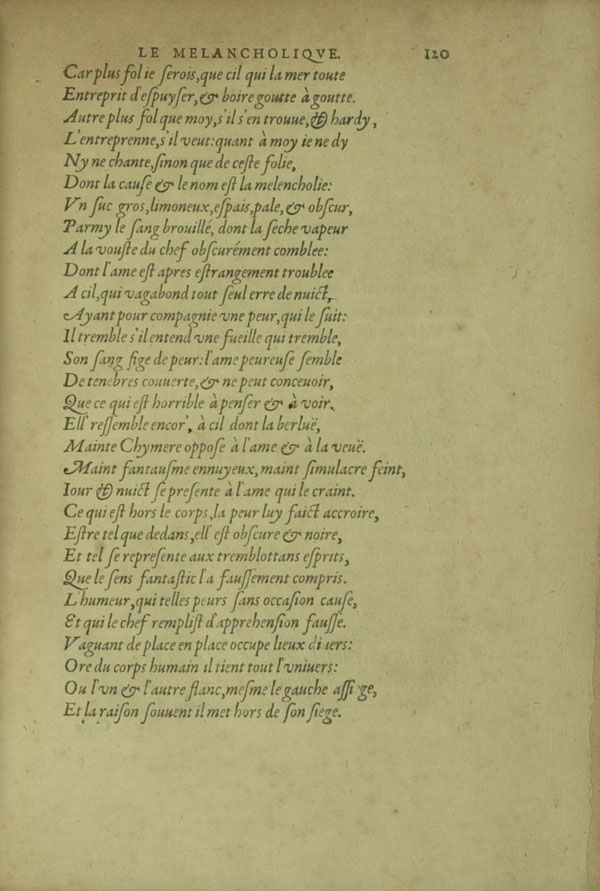 LE MELANCHOLIQVE. 120
Car plus fol ie ſerois, que cil qui la mer toute
Entreprit d'eſpuyſer, & boire goutte à goutte.
Autre plus fol que moy, s'il s'en trouue, & hardy,
L'entreprenne, s'il veut: quant à moy ie ne dy
Ny ne chante, ſinon que de ceſte folie,
Dont la cauſe & le nom eſt la melencholie:
Vn ſuc gros, limoneux, eſpais, pale, & obſcur,
Parmy le ſang brouillé, dont la ſeche vapeur
A la vouſte du chef obſcurément comblee:
Dont l'ame eſt apres eſtrangement troublee
A cil, qui vagabond tout ſeul erre de nuict,
Ayant pour compagnie vne peur, qui le ſuit:
Il tremble s'il entend vne fueille qui tremble,
Son ſang fige de peur: l'ame peureuſe ſemble
De tenebres couuerte, & ne peut conceuoir,
Que ce qui eſt horrible à penſer & à voir.
Ell' reſſemble encor', à cil dont la berluë,
Mainte Chymere oppoſe à l'ame & à la veuë.
Maint fantauſme ennuyeux, maint ſimulacre feint,
Iour & nuict ſe preſente à l'ame qui le craint.
Ce qui eſt hors le corps, la peur luy faict accroire,
Eſtre tel que dedans, ell' eſt obſcure & noire,
Et tel ſe repreſente aux tremblottans eſprits,
Que le ſens fantaſtic l'a fauſſement compris.
L'humeur, qui telles peurs ſans occaſion cauſe,
Et qui le chef rempliſt d'apprehenſion fauſſe.
Vaguant de place en place occupe lieux diuers:
Ore du corps humain il tient tout l'vniuers:
Ou l'vn & l'autre flanc, meſme le gauche aſſiege,
Et la raiſon ſouuent il met hors de ſon ſiege.